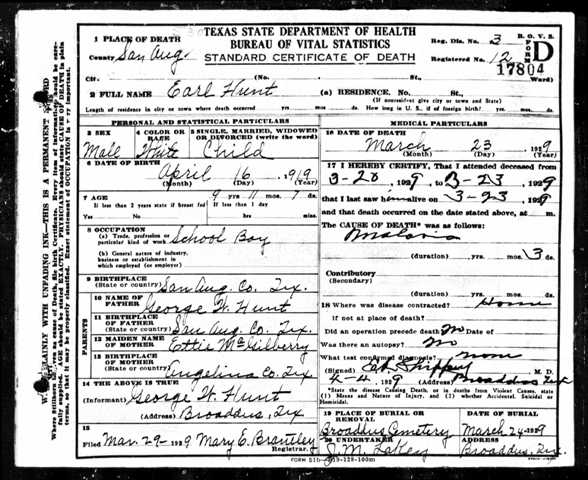 TEXAS STATE DEPARTMENT OF HEALTH
BUREAU OF VITAL STATISTICS
STANDARD CERTIFICATE OF DEATH
Reg. Dis. No. 3
Registered No. 12
B. O. V. S.
FORM D
17804
1 PLACE OF DEATH
County San Aug.
City (No. St., Ward)
2 FULL NAME Earl Hunt (a) RESIDENCE. No. St.,
(If nonresident give city or town and State)
Length of residence in city or town where death occurred yrs. mos. ds. How long in U. S., if of foreign birth? yrs. mos. ds.
PERSONAL AND STATISTICAL PARTICULARS
3 SEX
Male
4 COLOR OR RACE
White
5 SINGLE, MARRIED, WIDOWED OR DIVORCED (write the word)
Child
6 DATE OF BIRTH
April 16 1919
(Month) (Day) (Year)
7 AGE 9 yrs. 11 mos. 7 ds.
If less than 2 years state if breast fed If less than 1 day
Yes No hrs. min.
8 OCCUPATION
(a) Trade, profession or particular kind of work School Boy
(b) General nature of industry, business or establishment in which employed (or employer)
9 BIRTHPLACE
(State or country) San Aug. Co. Tex.
PARENTS
10 NAME OF FATHER George W. Hunt
11 BIRTHPLACE OF FATHER
(State or country) San Aug. Co. Tex.
12 MAIDEN NAME OF MOTHER Ettie McGilberry
13 BIRTHPLACE OF MOTHER
(State or country) Angelina Co. Tex
14 THE ABOVE IS TRUE
(Informant) George W. Hunt
(Address) Broaddus, Tex
15
Filed Mar. 29 - 1929 Mary E. Brantley
Registrar.
MEDICAL PARTICULARS
16 DATE OF DEATH
March 23 1929
(Month) (Day) (Year)
17 I HEREBY CERTIFY, That I attended deceased from
3-20, 1929, to 3-23, 1929
that I last saw him alive on 3-23, 1929
and that death occurred on the date stated above, at m.
The CAUSE OF DEATH* was as follows:
Malaria
(duration) yrs. mos. 3 ds.
Contributory
(Secondary)
(duration) yrs. mos. ds.
18 Where was disease contracted? Home
If not at place of death?
Did an operation precede death No Date of
Was there an autopsy? No
What test confirmed diagnosis? none
(Signed) M. D.
4-4, 1929 (Address) Broaddus Tex
*State the Disease Causing Death, or in deaths from Violent Causes, state (1) Means and Nature of Injury, and (2) whether Accidental, Suicidal or Homicidal.
19 PLACE OF BURIAL OR REMOVAL
Broaddus Cemetery
DATE OF BURIAL
March 24 1929
20 UNDERTAKER
J. M. Lakey
ADDRESS
Broaddus, Tex.